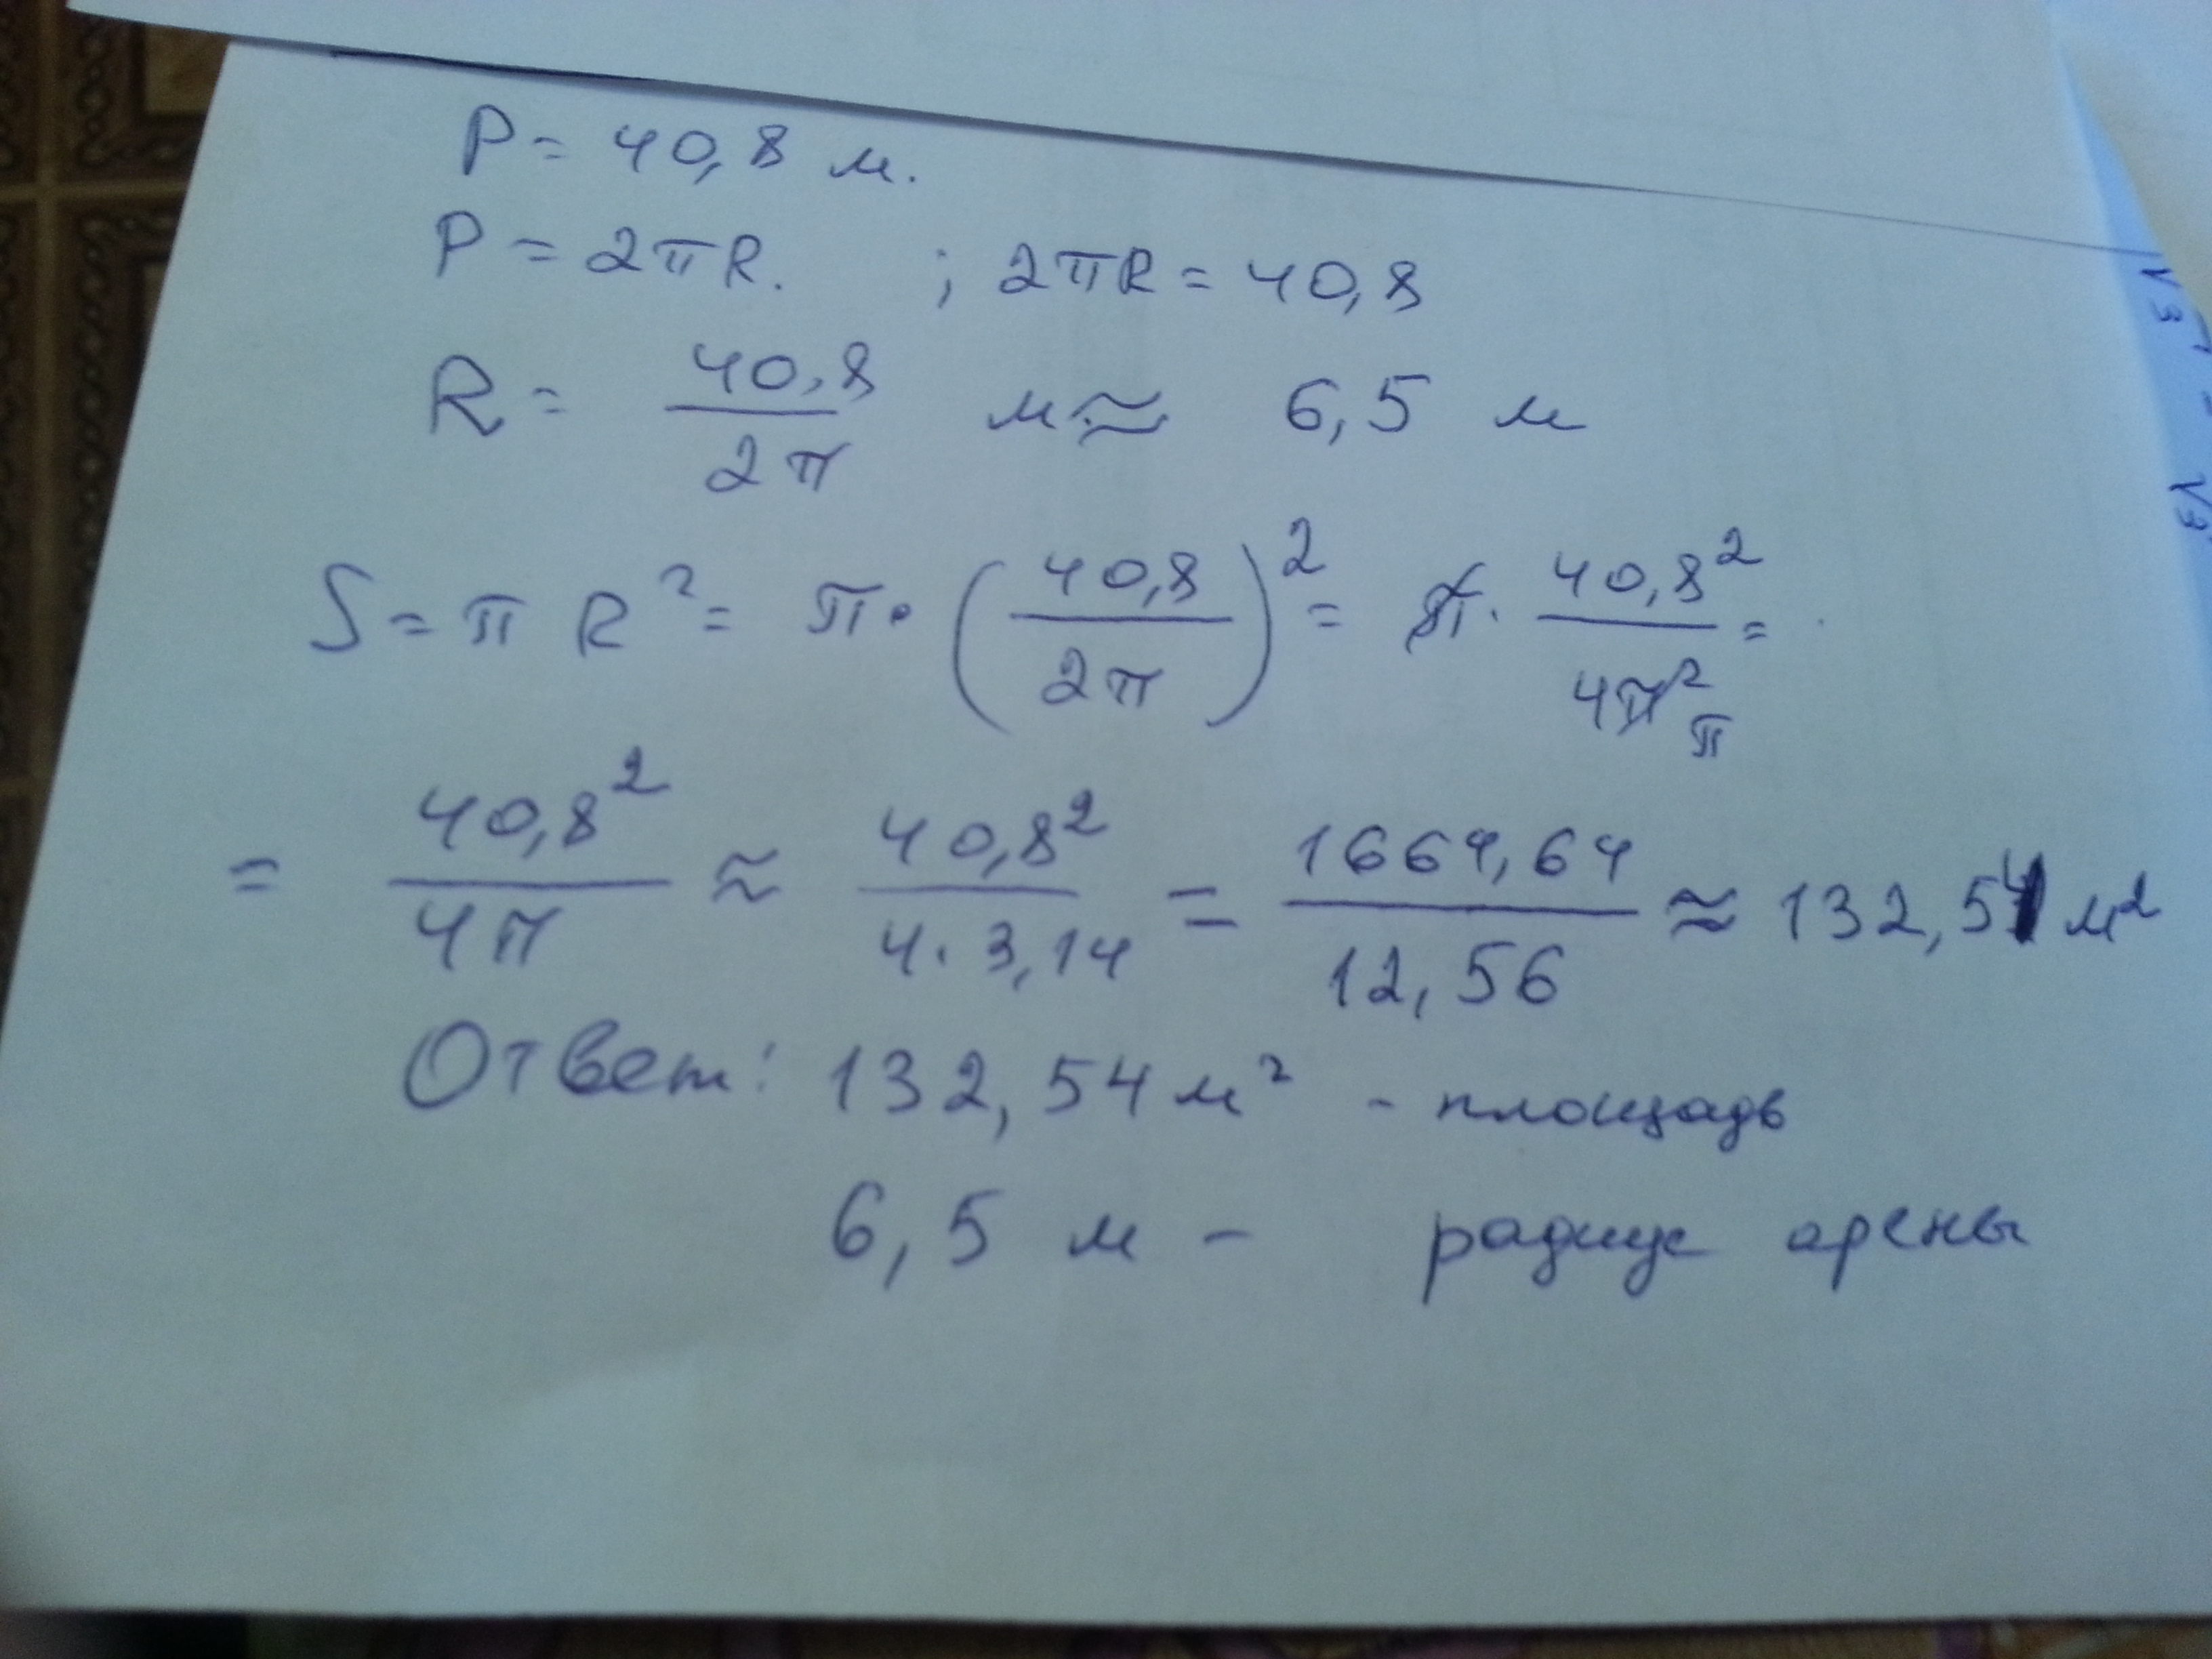 P = 40,8 м.
P = 2πR. ; 2πR = 40,8
R = 40,8 / 2π м ≈ 6,5 м
S = π R² = π · (40,8 / 2π)² = π · 40,8² / 4π² π =
= 40,8² / 4π ≈ 40,8² / 4 · 3,14 = 1664,64 / 12,56 ≈ 132,54 м²
Ответ: 132,54 м² - площадь
6,5 м - радиус арены
√3
√3